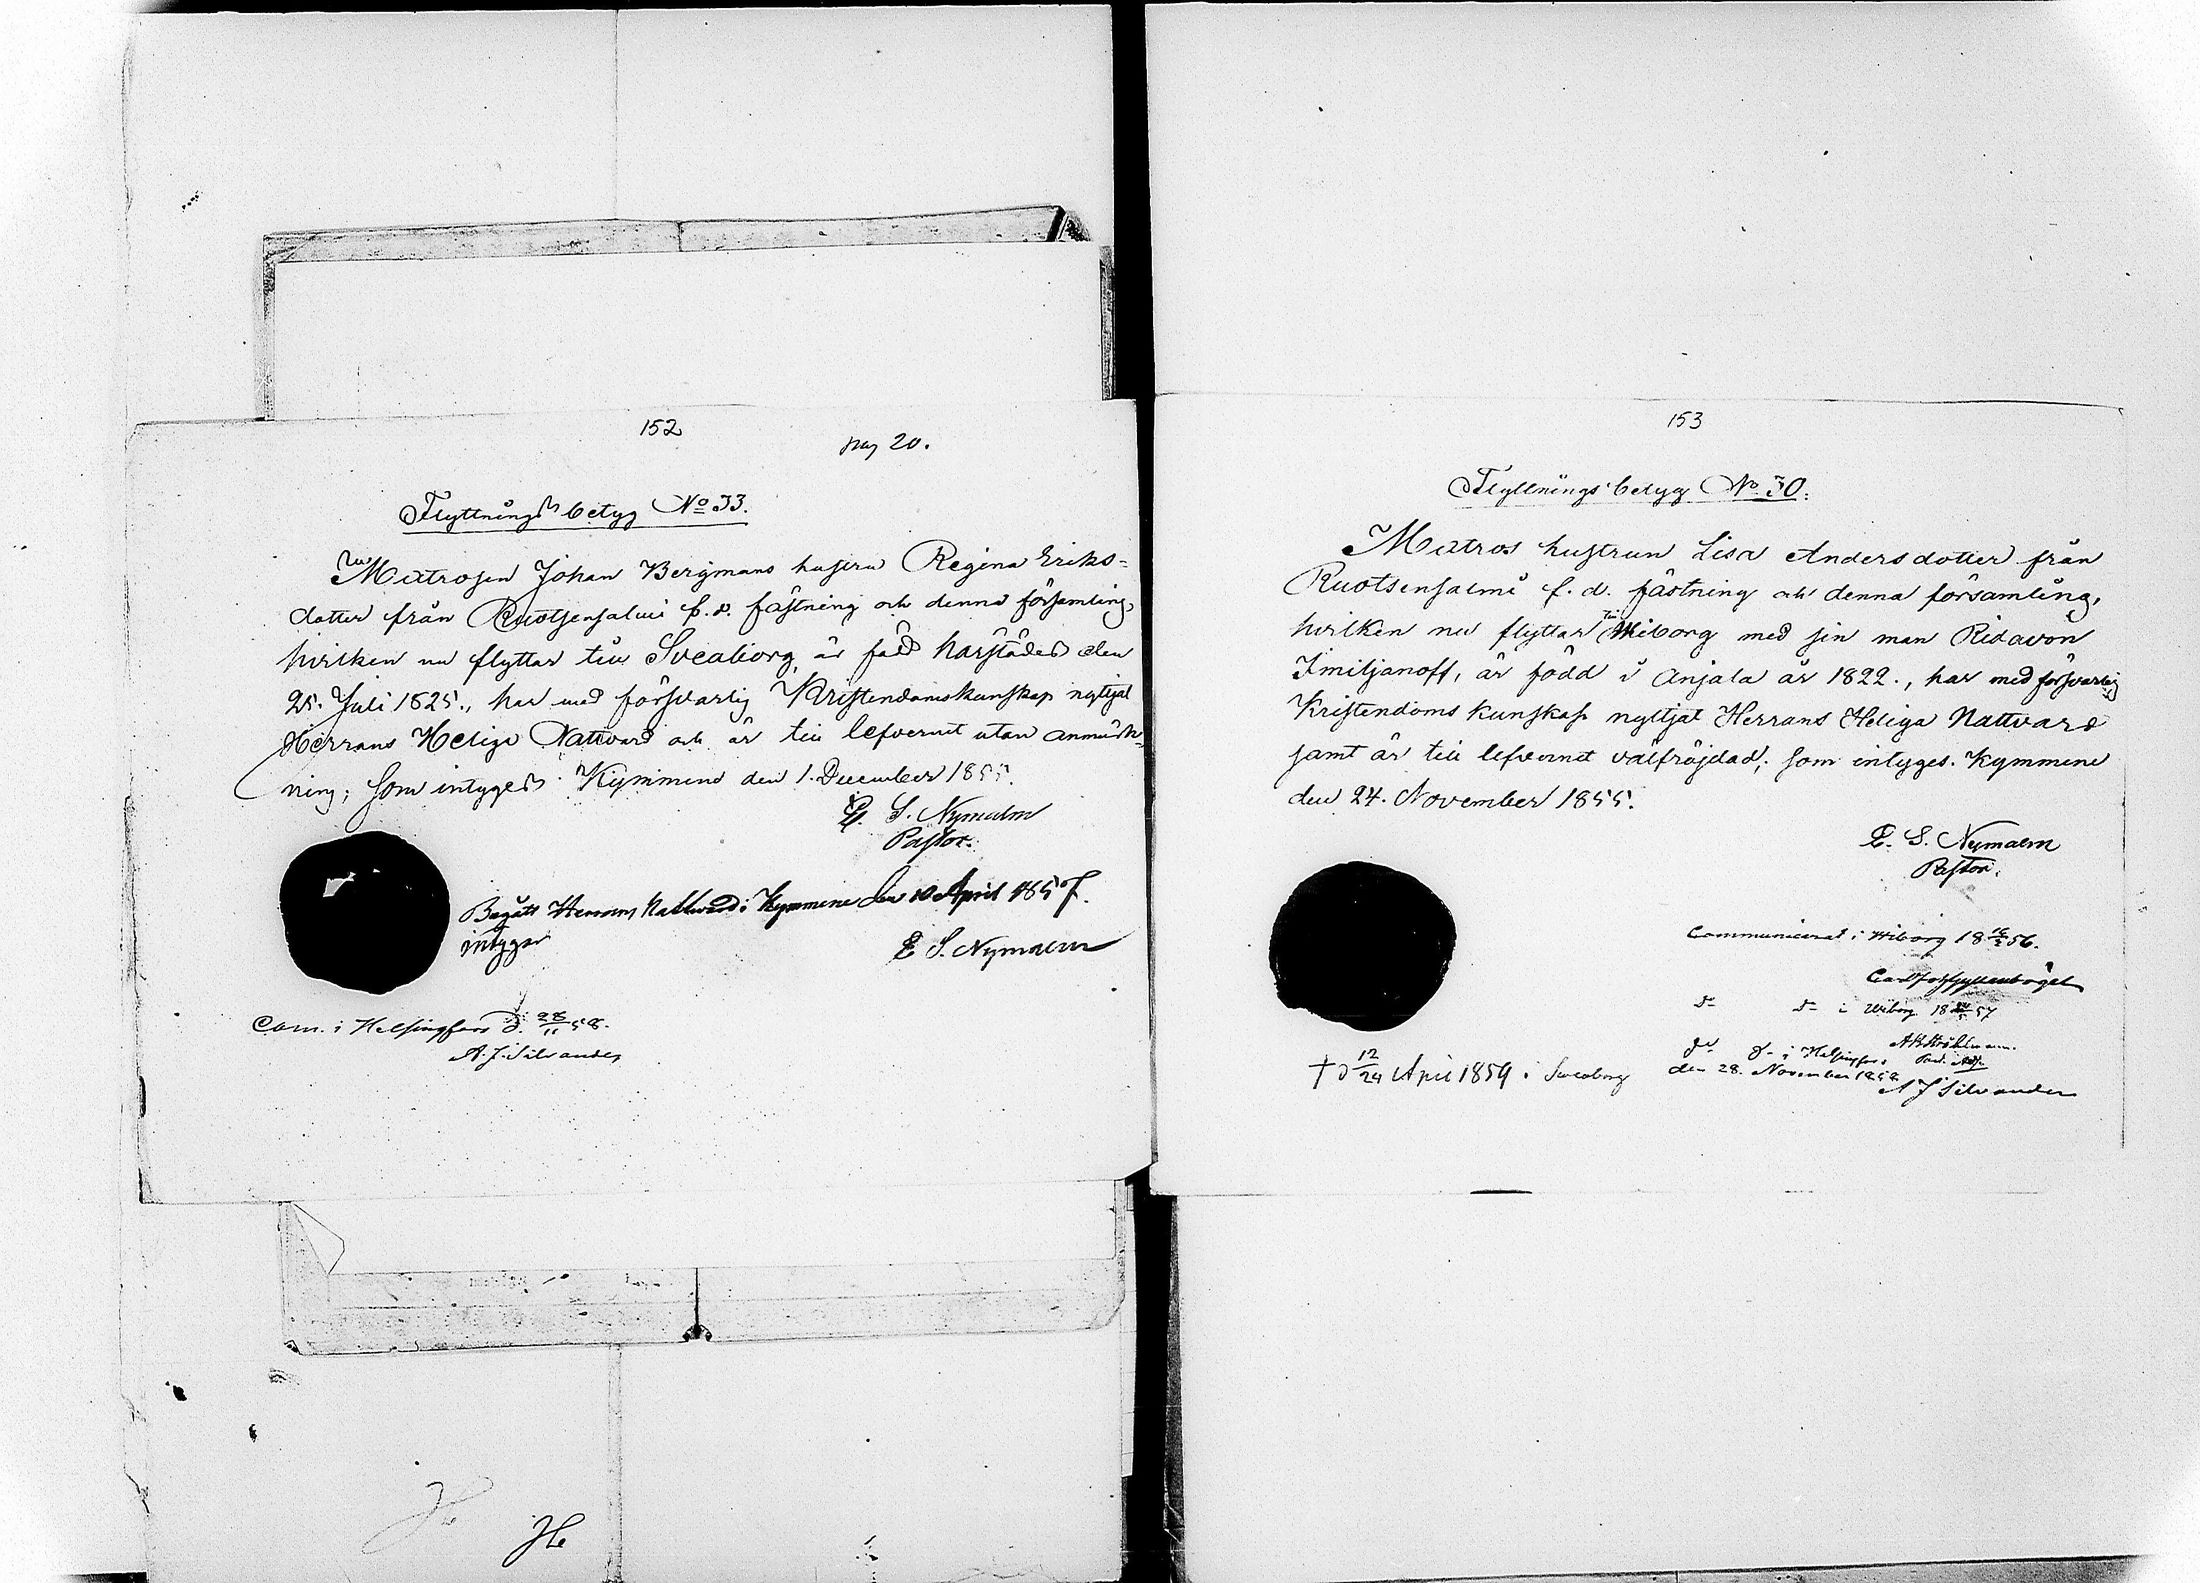 152
pag 20.
Flyttnings betyg No 33.
Matrosen Johan Bergmans hustru Regina Eriks-
dotter från Ruotsensalmi f. d. fästning och denna församling,
hvilken nu flyttar till Sveaborg, är född härstädes den
25. Juli 1825., har med försvarlig Kristendomskunskap nyttjat
Herrans Heliga Nattvard och är till lefvernet utan anmärk-
ning; som intygas. Kymmene den 1. December 1855.
E. S. Nymalm
Pastor.
Begått Herrans Nattvard i Kymmene den 10 April 1857.
intygar
E. S. Nymalm
Com. i Helsingfors d. 28/11 58.
A. J. Silvander
He
153
Flyttnings betyg No 30.
Matros hustrun Lisa Andersdotter från
Ruotsensalmi f. d. fästning och denna församling,
hvilken nu flyttar till Wiborg med sin man Ridavon
Imiljanoff, är född i Anjala år 1822., har med försvarlig
Kristendoms kunskap nyttjat Herrans Heliga Nattvard
samt är till lefvernet välfräjdad; som intyges. Kymmene
den 24. November 1855.
E. S. Nymalm
Pastor.
Communicerat i Wiborg 18 56.
do do i Wiborg 18 57
do do i Helsingfors
den 28. November 1858
A J Silvander
† d 12/24 April 1859 i Sveaborg